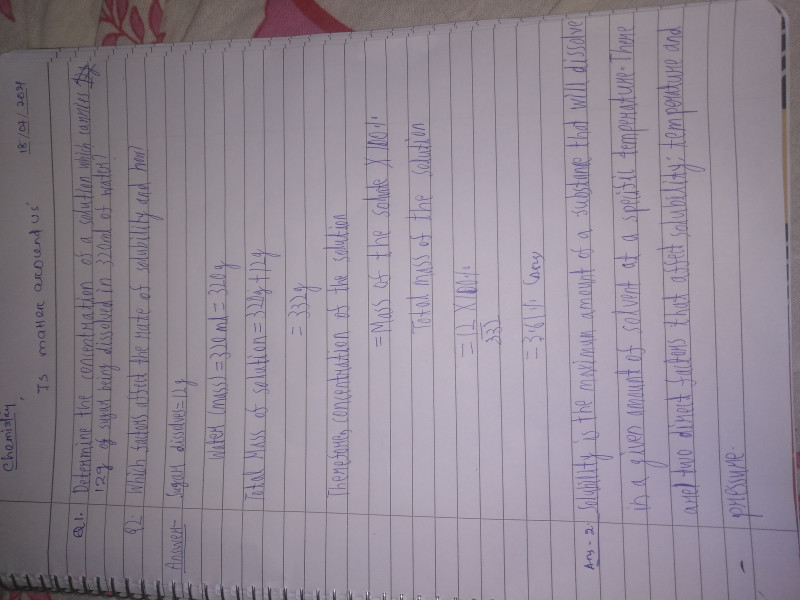 Chemistry,
18/07/2021
Is matter around us'
Q1. Determine the concentration of a solution which carries
12g of sugar being dissolved in 320ml of water?
Q2. Which factors affect the rate of solubility and how?
Answer- Sugar dissolves=12g
Water (mass) = 320 ml = 320g
Total Mass of solution = 320g + 12g
= 332g
Therefore, concentration of the solution
= Mass of the solute X 100%
Total mass of the solution
= 12 X 100%
332
= 3.61%
Ans-2. Solubility is the maximum amount of a substance that will dissolve
in a given amount of solvent at a specific temperature. There
are two direct factors that affect solubility: temperature and
pressure.